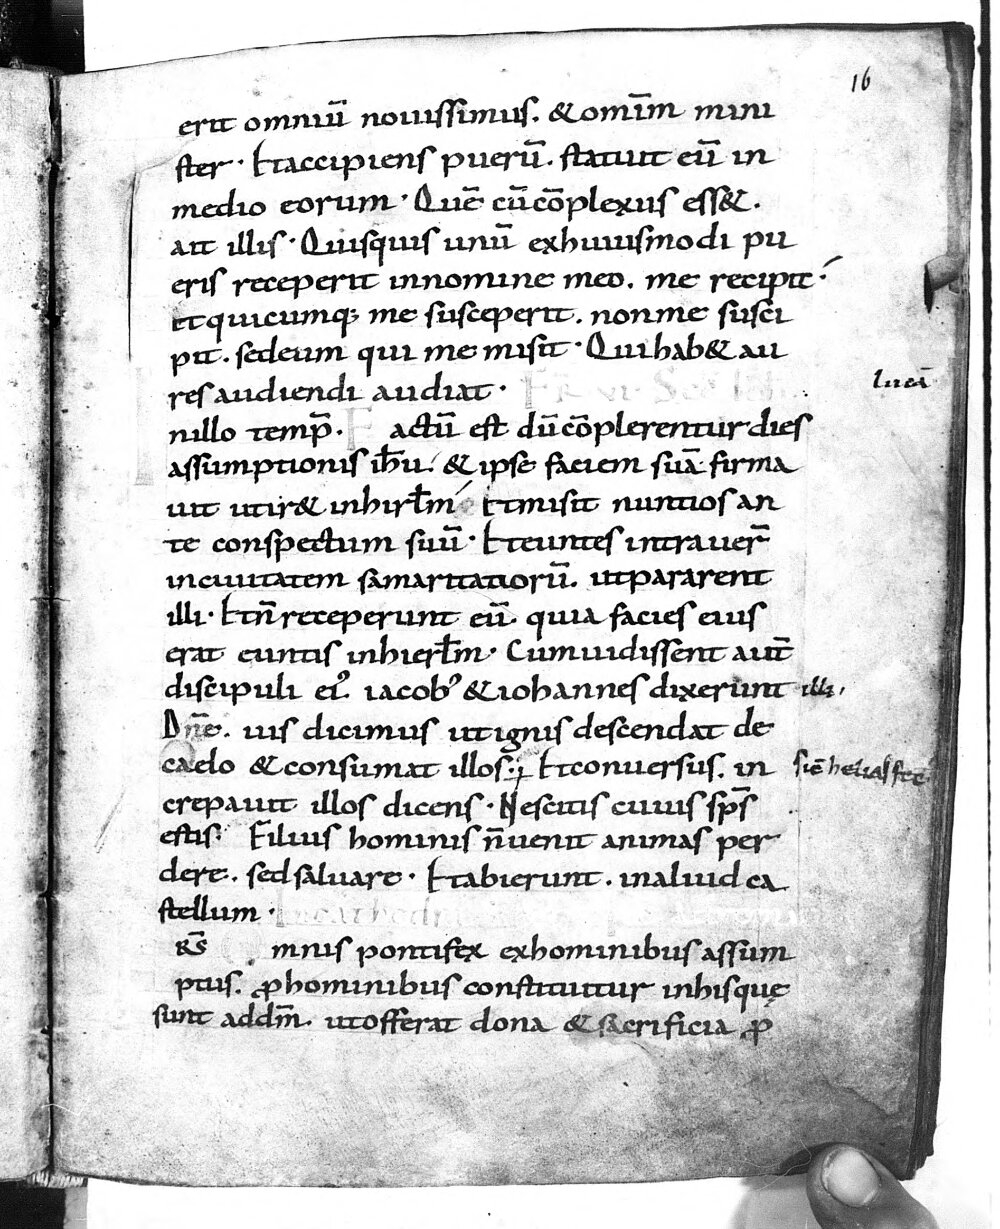 16
erit omniū nouissimus. & om̄im mini
ster· Et accipiens puerū. statuit eū in
medio eorum· Quē cū cōplexus ess&.
ait illis· Quisquis unū exhuiusmodi pu
eris receperit innomine meo. me recipit·
et quicumq; me susceperit. nonme susci
pit. sedeum qui me misit· Quihab& au
res audiendi audiat·
lucā
nillo temp̄. F actū est dū cōplerentur dies
assumptionis ih̄u. & ipse faciem suā firma
uit utir& inhirl̄m Et misit nuntios an
te conspectum suū· Et euntes intrauer̄
inciuitatem samaritanorū. utpararent
illi· Et n̄ receperunt eū. quia facies eius
erat euntis inhierl̄m· Cumuidissent aut̄
discipuli eiꝰ. iacobꝰ & iohannes dixerunt illi.
Dn̄e. uis dicimus ut ignis descendat de
caelo & consumat illos· Et conuersus. in
sic̄ helias fec̄
crepauit illos dicens· Nescitis cuius sp̄s
estis· Filius hominis n̄ uenit animas per
dere. sed saluare· Et abierunt. inaliud ca
stellum·
R̄S mnis pontifex exhominibus assum
ptus. ꝓhominibus constituitur inhisquę
sunt add̄m. utofferat dona & sacrificia ꝓ